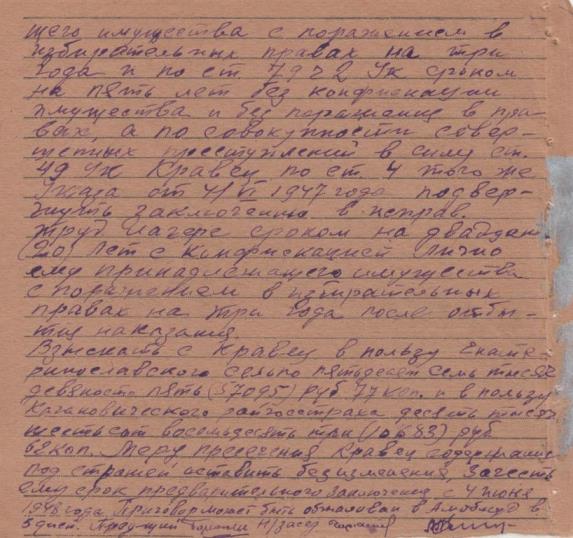 щего имущества с поражением в
избирательных правах на три
года и по ст. 79-2 Ук сроком
на пять лет без конфискации
имущества и без поражение в пра-
вах, а по совокупности совер-
шенных преступлений в силу ст.
49 Ук Кравец по ст. 4 того же
Указа от 4/VI 1947 года подвер-
гнуть заключению в исправ.
труд лагере сроком на двадцат
(20) лет с конфискацией лично
ему принадлежащего имущества
с поражением в избирательных
правах на три года после отбы-
тия наказания
Взыскать с Кравец в пользу Екате-
ринославского сельпо пятьдесят семь тысяч
девяносто пять (57095) руб 77 коп. и в пользу
Кагановического райгосстраха десять тысяч
шестьсот восемьдесять три (10683) руб
62 коп. Меру пресечения Кравец содержание
под стражей оставить без изменения, Зачесть
ему срок предварительного заключения с 4 июня
1948 года. Приговор может быть обжалован в Амоблсуд в
5 дней. Пред-щий Н/засед